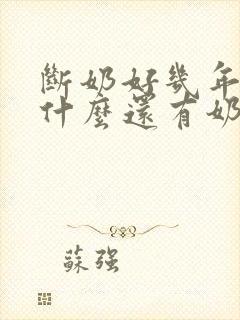 斷奶好幾年
什麼還有奶
蘇强